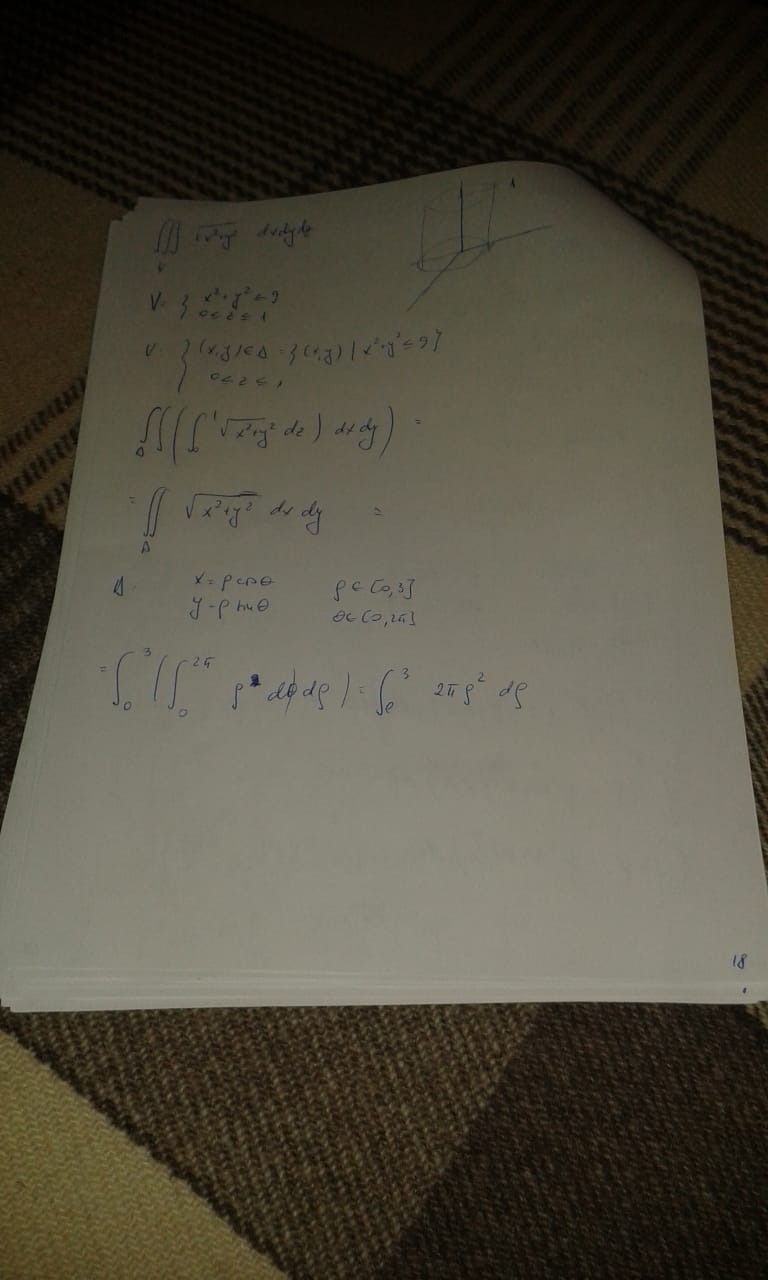 1
∭ √x²+y² dxdydz
V
V= { x²+y² ≤ 9
0 ≤ z ≤ 1
V { (x,y) ∈ Δ = { (x,y) | x²+y² ≤ 9}
0 ≤ z ≤ 1
∬ ( ∫₀¹ √x²+y² dz ) dx dy ) =
Δ
= ∬ √x²+y² dx dy =
Δ
Δ. x = ρ cos θ ρ ∈ [0,3]
y = ρ sin θ θ ∈ [0,2π]
= ∫₀³ ( ∫₀^2π ρ² dθ dρ ) = ∫₀³ 2π ρ² dρ
18